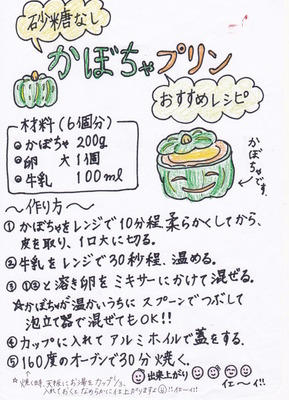 砂糖なし
かぼちゃプリン
おすすめレシピ
材料(6個分)
かぼちゃ 200g
卵 大1個
牛乳 100ml
かぼちゃです。
〜作り方〜
①かぼちゃをレンジで10分程、柔らかくしてから、
皮を取り、1口大に切る。
②牛乳をレンジで30秒程、温める。
③①②と溶き卵をミキサーにかけて混ぜる。
☆かぼちゃが温かいうちにスプーンでつぶして
泡立て器で混ぜてもOK!!
④カップに入れてアルミホイルで蓋をする。
⑤160度のオーブンで30分焼く。
☆焼く時、天板にお湯をカップ1/3
入れておくとなめらかに仕上がります!!イェーイ!!
出来上がり
イェ〜イ!!